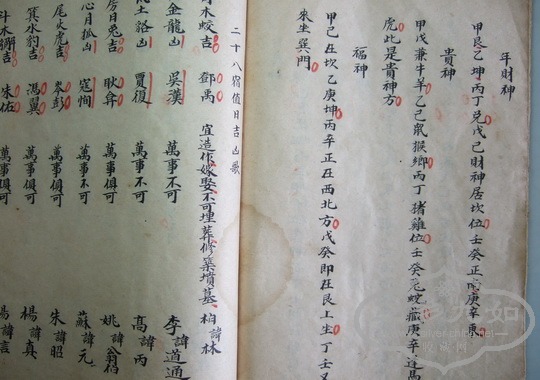 年財神
甲艮乙坤丙丁兑戊己財神居坎位壬癸正庚辛東
貴神
甲戊兼牛羊乙己鼠猴鄉丙丁猪雞位壬癸兔蛇藏庚辛逢馬
虎此是貴神方
福神
甲己在坎乙庚坤丙辛正在西北方戊癸即在艮上坐丁壬又
來坐巽門
二十八宿值日吉凶歌
木蛟吉 鄧禹 宜造作嫁娶不可埋葬修築墳墓 柏諱林
金龍凶 吳漢 萬事不可 李諱道通
土貉凶 賈復 萬事不可 高諱丙
房日兔吉 耿弇 萬事俱可 姚諱
心月狐凶 寇恂 萬事不可 蘇諱元
尾火虎吉 岑彭 萬事俱可 朱諱昭
箕水豹吉 馮翼 萬事俱可 楊諱真
斗木獬吉 朱佑 萬事俱可 諱言